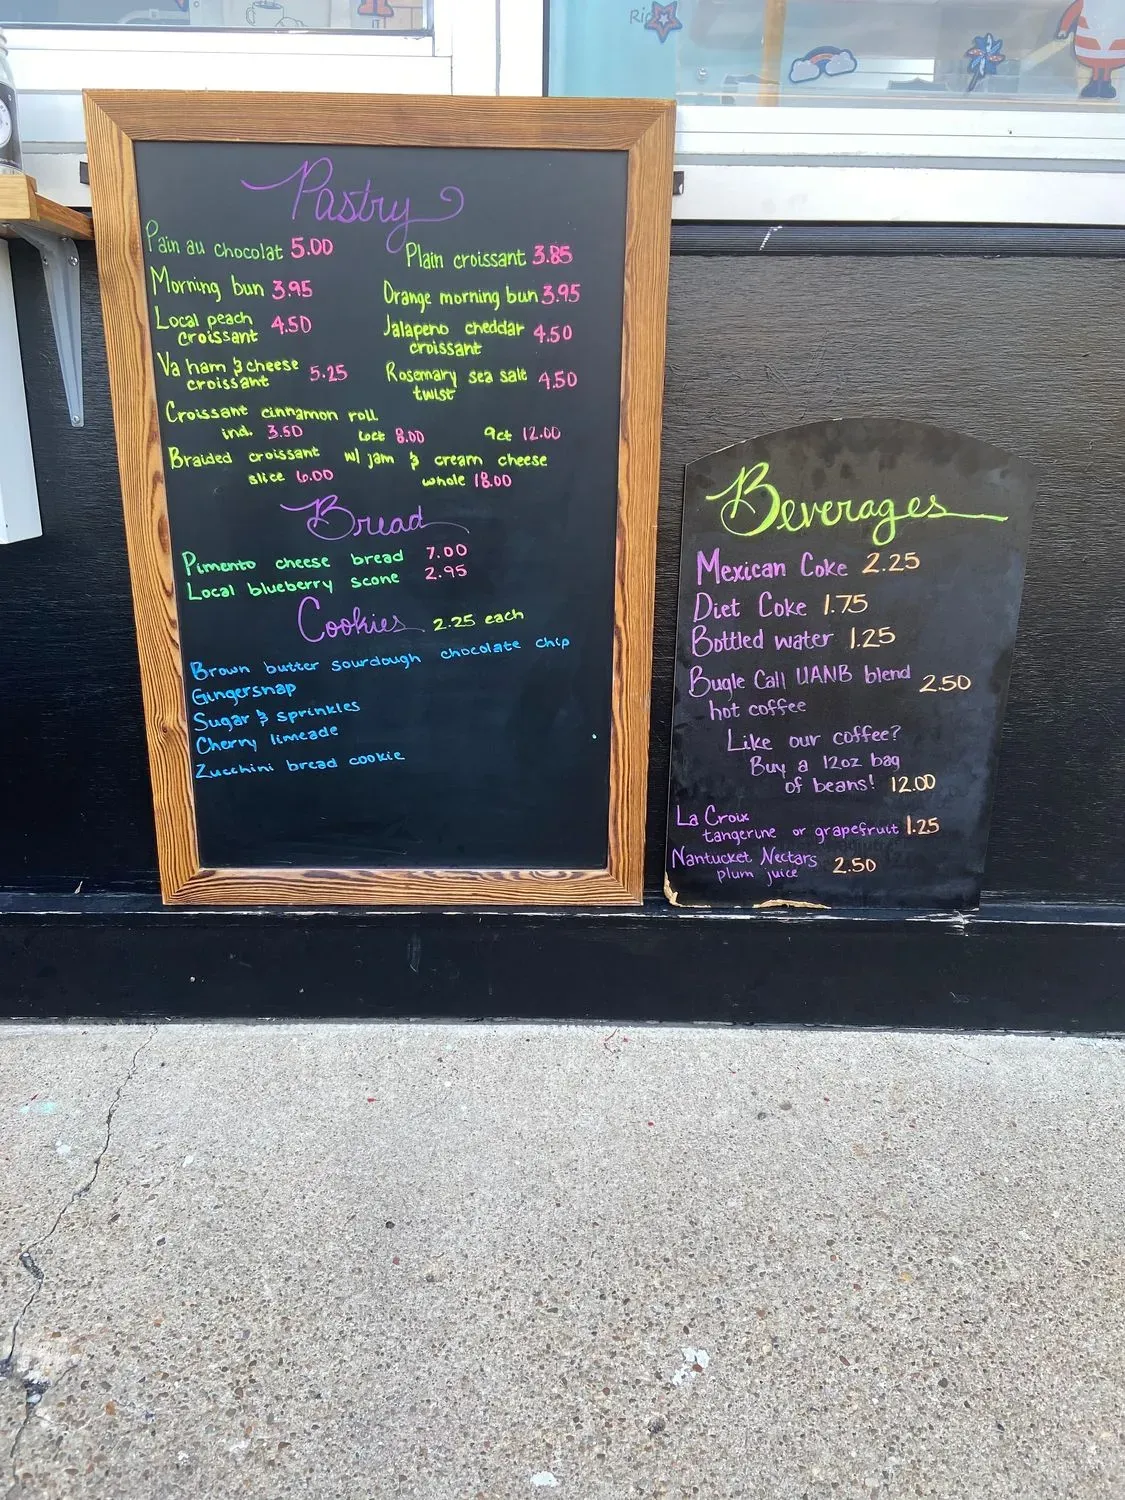 Ric
Pastry
Pain au chocolat 5.00
Plain croissant 3.85
Morning bun 3.95
Orange morning bun 3.95
Local peach
croissant 4.50
Jalapeno cheddar
croissant 4.50
Va ham & cheese
croissant 5.25
Rosemary sea salt
twist 4.50
Croissant cinnamon roll
ind. 3.50 6ct 8.00 9ct 12.00
Braided croissant w/ jam & cream cheese
slice 6.00 whole 18.00
Bread
Pimento cheese bread 7.00
Local blueberry scone 2.95
Cookies 2.25 each
Brown butter sourdough chocolate chip
Gingersnap
Sugar & sprinkles
Cherry limeade
Zucchini bread cookie
Beverages
Mexican Coke 2.25
Diet Coke 1.75
Bottled water 1.25
Bugle Call UANB blend 2.50
hot coffee
Like our coffee?
Buy a 12oz bag
of beans! 12.00
La Croix
tangerine or grapefruit 1.25
Nantucket Nectars 2.50
plum juice